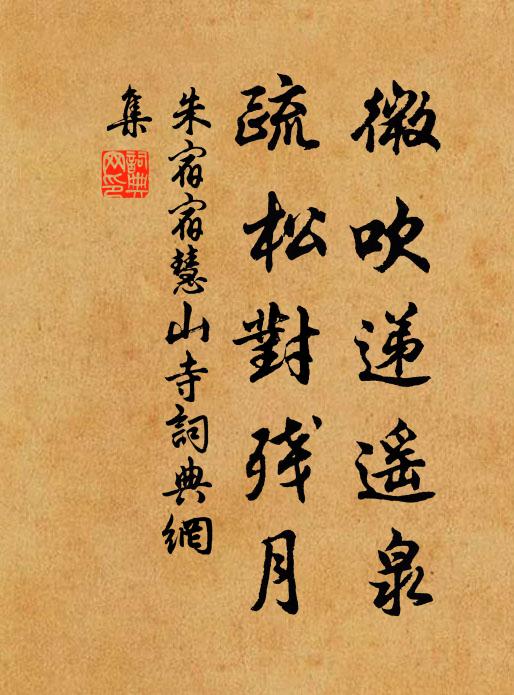 微吹递遥泉
疏松對残月
朱宿宿慧山寺詞典網
集
詞典
网印